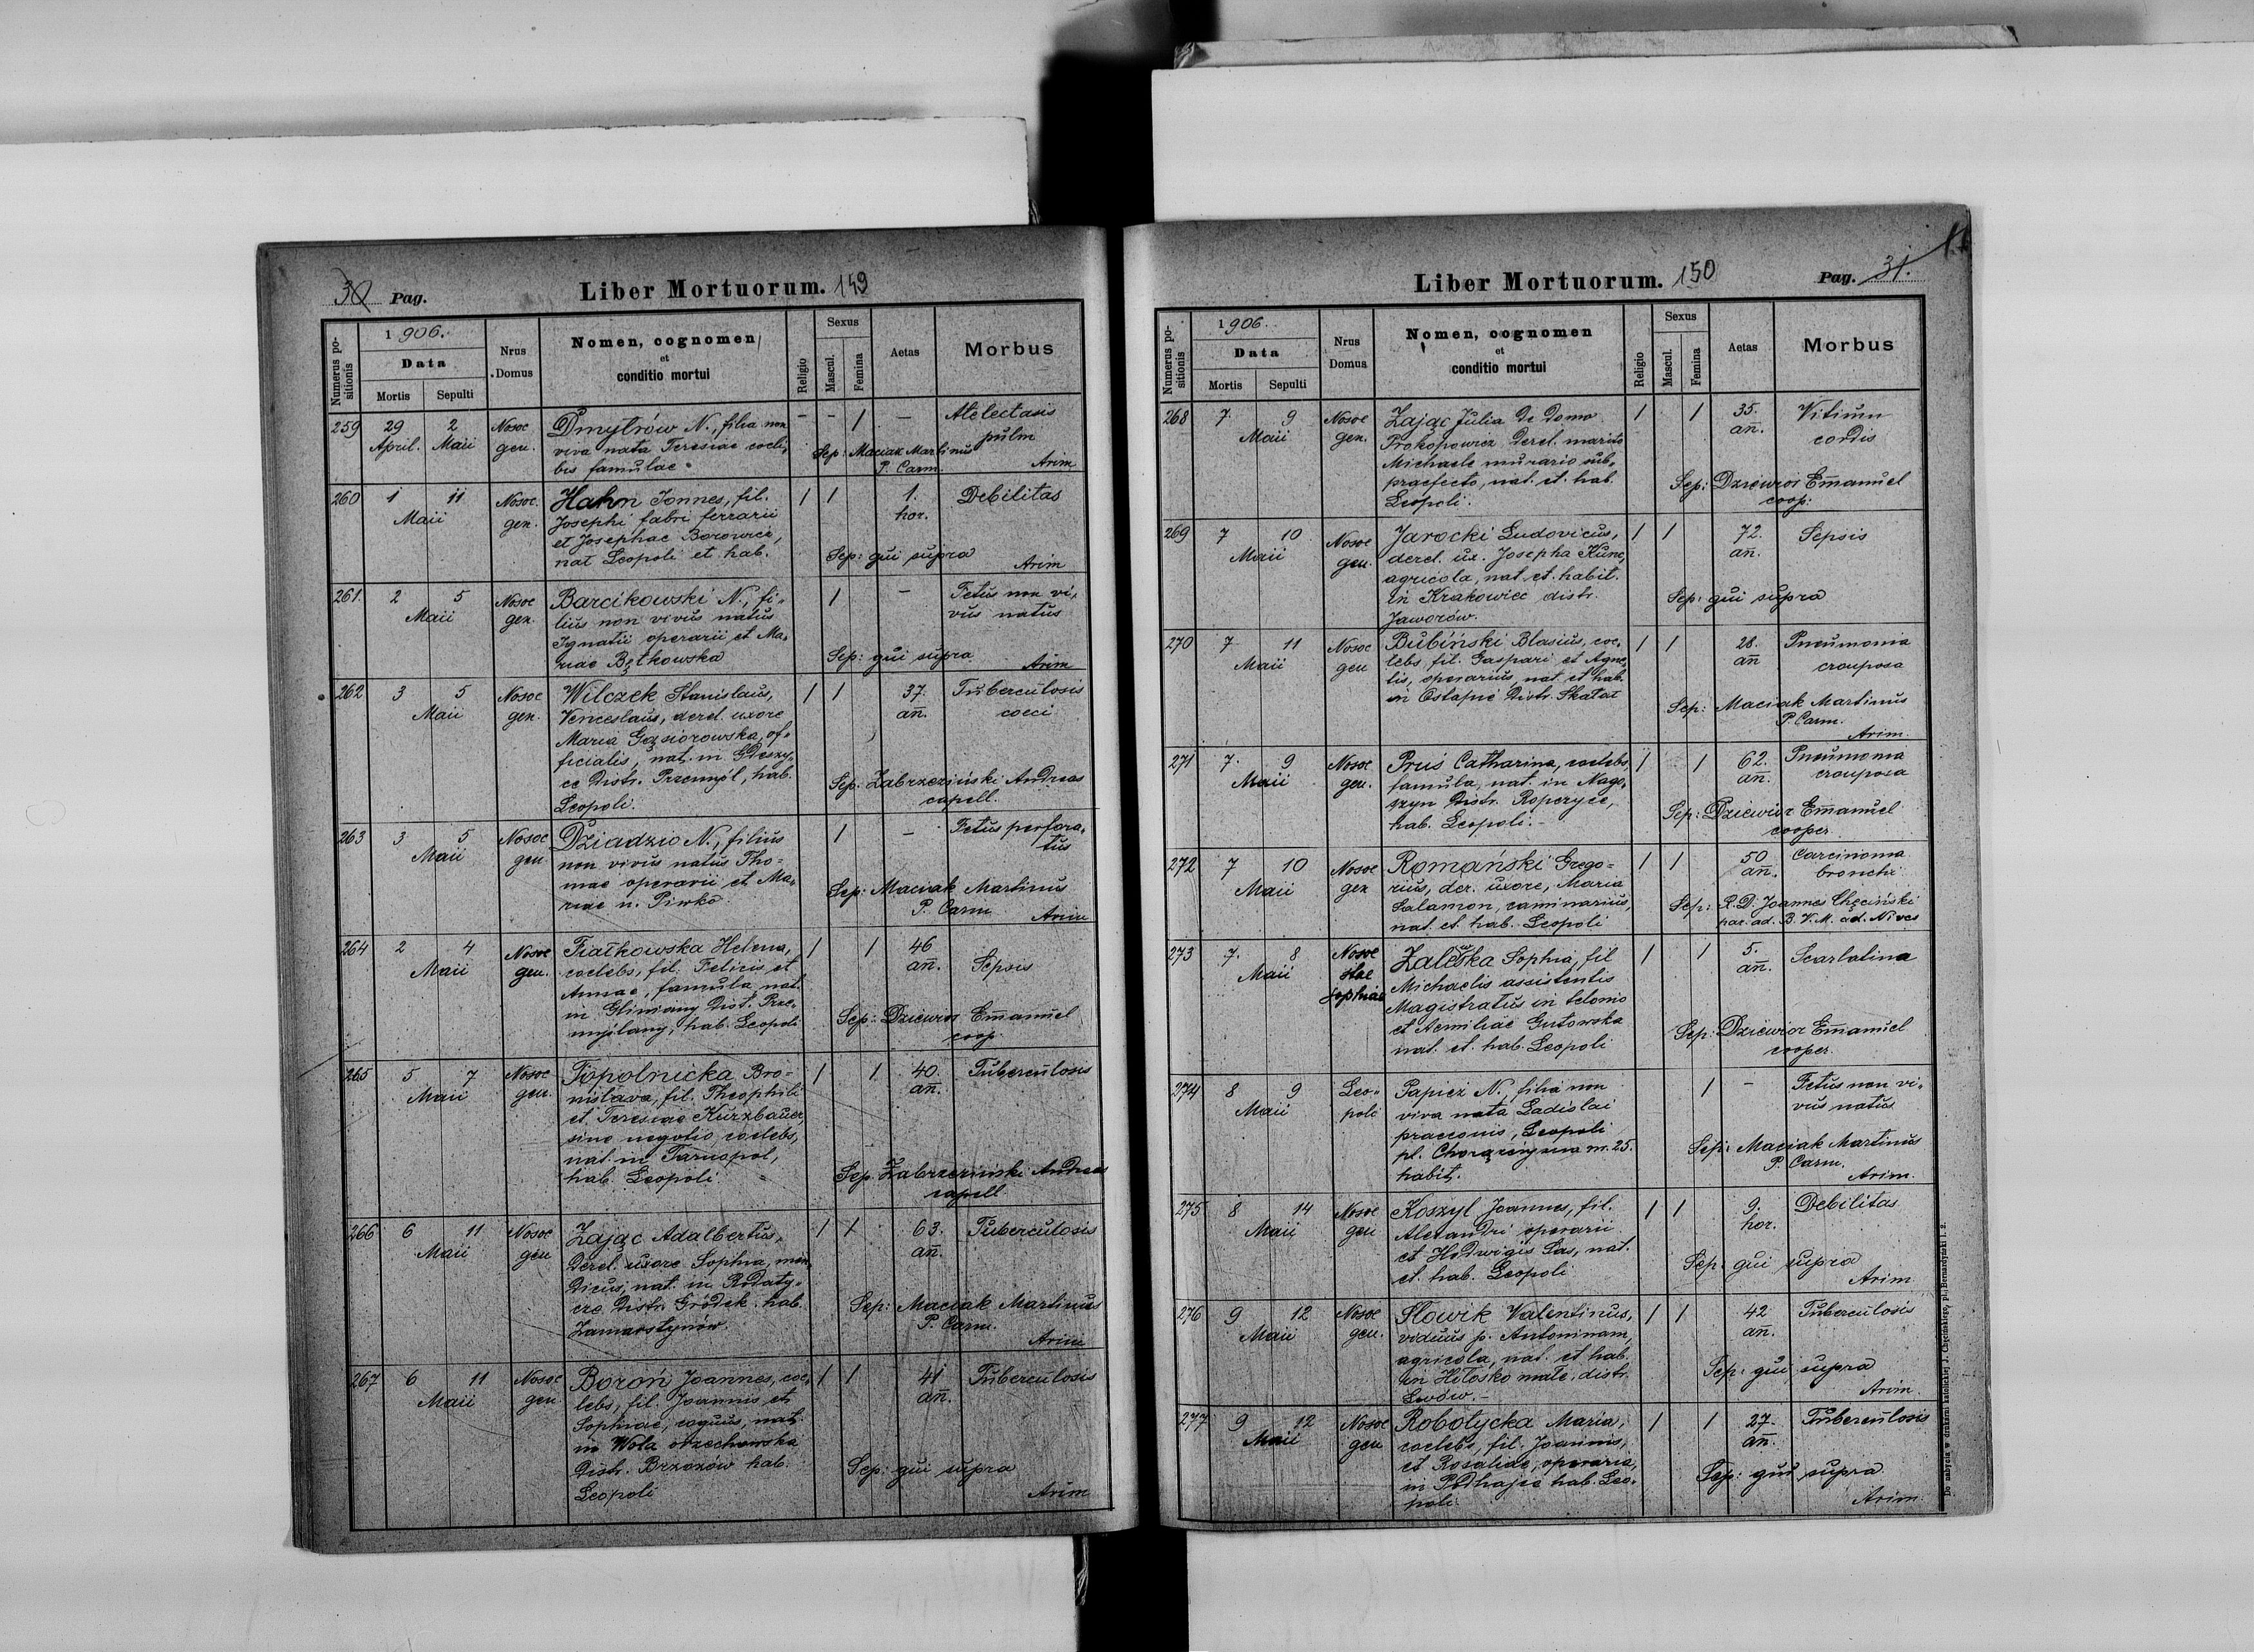 30 Pag.
Liber Mortuorum. 149
Numerus positionis
1906.
Data
Mortis Sepulti
Nrus Domus
Nomen, cognomen
et
conditio mortui
Religio
Sexus
Mascul. Femina
Aetas
Morbus
259 29 2 Nosoc Dmytrów N., filia non - - 1 - Atelectasis
April. Maii gen. viva nata Teresiae coeli- pulm
bis famulae Sep: Maciak Martinus
P. Carm. Arim
260 1 11 Nosoc. Hahn Ionnes, fil. 1 1 1. Debilitas
Maii gen. Josephi fabri ferrarii hor.
et Josephae Borowicz,
nat Leopoli et hab. Sep: qui supra
Arim
261. 2 5 Nosoc Barcikowski N., fi- 1 - Fetus non vi-
Maii gen. lius non vivus natus vus natus
Ignatii operarii et Ma-
riae Bętkowska Sep: qui supra
Arim
262 3 5 Nosoc Wilczek Stanislaus, 1 1 37. Tuberculosis
Maii gen. Venceslaus, derel. uxore an̄. coeci
Maria Gąsiorowska, of-
ficialis, nat. in Gdeszy-
ce Distr. Przemyśl, hab. Sep. Zabrzeziński Andreas
Leopoli. capell.
263 3 5 Nosoc Dziadzio N., filius 1 - Fetus perfora-
Maii gen. non vivus natus Tho- tus
mae operarii et Ma- Sep: Maciak Martinus
riae n. Piwko P. Carm Arim
264 2 4 Nosoc Fiałkowska Helena, 1 1 46
Maii gen. coelebs, fil. Felicis et an̄. Sepsis
Annae, famula nat.
in Gliniany Dist. Prze- Sep: Dziewior Em̄anuel
myślany, hab. Leopoli coop
265 5 7 Nosoc Topolnicka Bro- 1 1 40. Tuberculosis
Maii gen. nislava, fil. Theophili an̄.
et Teresiae Kurzbauer,
sine negotio, coelebs,
nat. in Tarnopol, Sep. Zabrzeziński Andreas
hab. Leopoli capell
266 6 11 Nosoc Zając Adalbertus, 1 1 63. Tuberculosis
Maii gen Derel. uxore Sophia, men-
Dicus, nat. in Rodaty- an̄.
cze Distr. Gródek, hab. Sep: Maciak Martinus
Zamarstynów. P. Carm.
Arim
267 6 11 Nosoc Boroń Joannes, coe- 1 1 41 Tuberculosis
Maii gen. lebs, fil. Joannis et an̄.
Sophiae, coquus, nat.
in Wola orzechowska
Distr. Brzozów hab. Sep: qui supra
Leopoli Arim
Liber Mortuorum. 150
Pag. 31.
Numerus positionis
1906.
Data
Mortis Sepulti
Nrus Domus
Nomen, cognomen
et
conditio mortui
Religio
Sexus
Mascul. Femina
Aetas
Morbus
268 7. 9 Nosoc Zając Julia de Domo 1 1 35. Vitium
Maii gen. Prokopowicz Derel. marito an̄. cordis
Michaele murario sub-
praefecto, nat. et. hab. Sep: Dziewior Em̄anuel
Leopoli. coop:
269 7 10 Nosoc Jarocki Ludovicus, 1 1 72. Sepsis
Maii gen. derel. ux. Josepha Kunc, an.
agricola, nat. et. habit.
in Krakowiec distr. Sep: qui supra
Jaworów.
270 7 11 Nosoc Bubiński Blasius, coe- 1 1 28. Pneumonia
Maii gen lebs, fil. Gaspari et Agne- an̄ crouposa
tis, operarius, nat. et hab.
in Ostapie Distr. Skałat Sep: Maciak Martinus
P. Carm.
Arim.
271 7. 9 Nosoc Prus Catharina, coelebs, 1 1 62. Pneumonia
Maii gen. famula, nat. in Nago- an. crouposa
szyn Distr. Ropczyce, Sep: Dziewior Em̄anuel
hab. Leopoli.- cooper.
272 7 10 Nosoc Romański Grego- 1 1 50 Carcinoma
Maii gen rius, der. uxore, Maria an̄. bronchi
Salamon, caminarius, Sep: R. D. Joannes Chęciński
nat. et. hab. Leopoli par. ad. B. V. M. ad. Nives
273 7. 8 Nosoc Zaleska Sophia, fil 1 1 5. Scarlatina
Maii stae Michaelis assistentis an̄.
Sophiae Magistratus in telonio
et Aemiliae Gutowska Sep: Dziewior Em̄anuel
nat. et. hab. Leopoli cooper.
274 8 9 Leo- Papież N., filia non 1 - Fetus non vi-
Maii poli viva nata Ladislai vus natus
praeconis, Leopoli
pl. Chorążczyzna m. 25. Sep: Maciak Martinus
habit. P. Carm.
Arim.
275 8 14 Nosoc Koszyl Joannes, fil. 1 1 9. Debilitas
Maii gen Alexandri operarii hor.
et Hedwigis Sas, nat. Sep: qui supra
et. hab. Leopoli Arim
276 9 12 Nosoc Słowik Valentinus, 1 1 42 Tuberculosis
Maii gen. viduus p. Antoninam, an̄.
agricola, nat. et hab. Sep: qui supra
in Hołosko małe, distr. Arim.
Lwów.-
277 9 12 Nosoc Robotycka Maria, 1 1 27. Tuberculosis
Maii gen coelebs, fil. Joannis, an̄.
et Rosaliae, operaria, Sep: qui supra
in Podhajce hab. Leo-
poli. Arim.
Do nabycia w drukarni katolickiej J. Chęcińskiego, pl. Bernardyński l. 2.